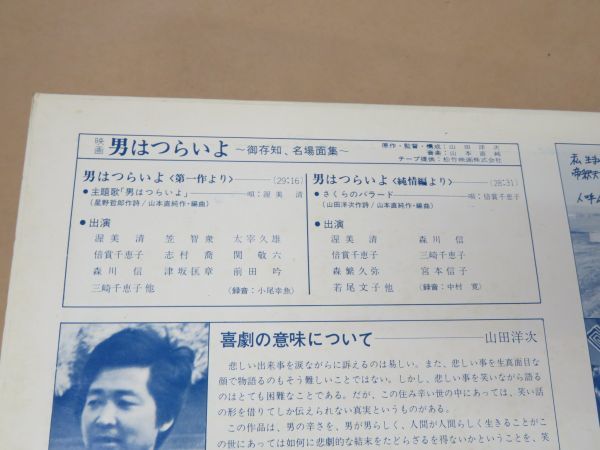 映画 男はつらいよ ~御存知、名場面集~
原作・監督・構成：山田洋次
音楽：山本直純
テープ提供：松竹映画株式会社
男はつらいよ〈第一作より〉 (29:16)
●主題歌「男はつらいよ」 唄：渥美 清
(星野哲郎作詩/山本直純作・編曲)
●出演
渥美 清 笠 智衆 太宰久雄
倍賞千恵子 志村 喬 関 敬六
森川 信 津坂匡章 前田 吟
三崎千恵子他 (録音：小尾幸魚)
男はつらいよ〈純情編より〉 (28:31)
●さくらのバラード 唄：倍賞千恵子
(山田洋次作詩/山本直純作・編曲)
●出演
渥美 清 森川 信
倍賞千恵子 三崎千恵子
森繁久弥 宮本信子
若尾文子他 (録音：中村 寛)
喜劇の意味について 山田洋次
悲しい出来事を涙ながらに訴えるのは易しい。また、悲しい事を生真面目な
顔で物語るのもそう難しいことではない。しかし、悲しい事を笑いながら語る
のはとても困難なことである。だが、この住み辛い世の中にあっては、笑い話
の形を借りてしか伝えられない真実というものがある。
この作品は、男の辛さを、男が男らしく、人間が人間らしく生きることがこ
の世にあっては如何に悲劇的な結末をたどらざるを得ないかということを、笑
私、生まれ
帝釈天
人呼ん